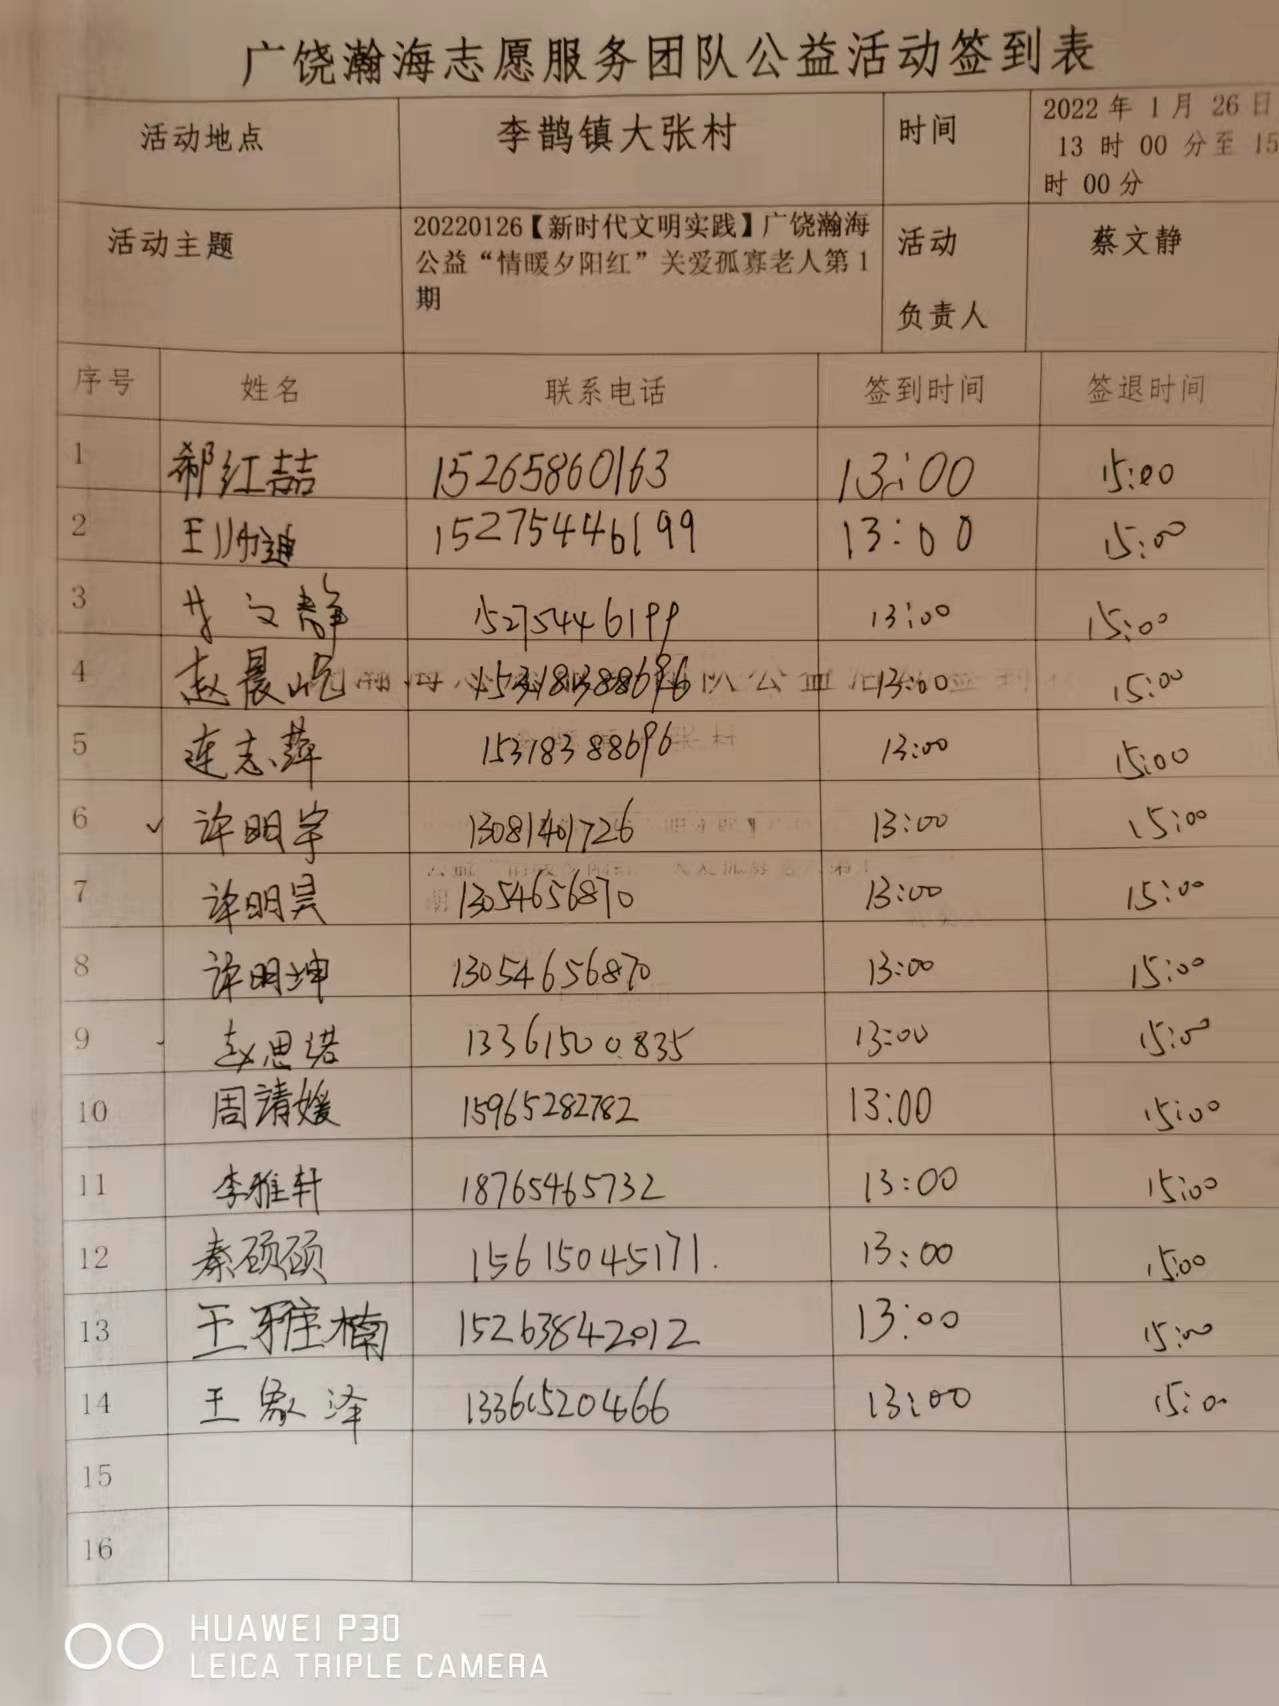 广饶瀚海志愿服务团队公益活动签到表
活动地点 李鹊镇大张村 时间 2022 年 1 月 26 日
13 时 00 分至 15
时 00 分
活动主题 20220126【新时代文明实践】广饶瀚海
公益“情暖夕阳红”关爱孤寡老人第 1
期
活动
负责人
蔡文静
序号 姓名 联系电话 签到时间 签退时间
1 郗红喆 15265860163 13:00 15:00
2 王 15275446199 13:00 15:00
3 文静 15275446199 13:00 15:00
4 赵晨屹 15318388696 13:00 15:00
5 连志萍 15318388696 13:00 15:00
6 许明宇 13081401726 13:00 15:00
7 许明昊 13054656870 13:00 15:00
8 许明坤 13054656870 13:00 15:00
9 赵思诺 13361500835 13:00 15:00
10 周靖媛 15965282782 13:00 15:00
11 李雅轩 18765465732 13:00 15:00
12 秦硕硕 15615045171. 13:00 15:00
13 王雅楠 15263842012 13:00 15:00
14 王家泽 13361520466 13:00 15:00
15
16
HUAWEI P30
LEICA TRIPLE CAMERA